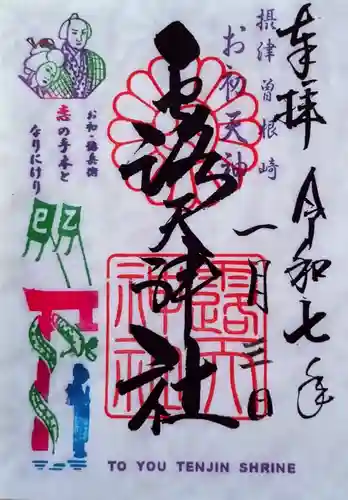 奉拝
令和七年
一月三日
摂津 曽根崎
お初天神
露天神社
露天
神社
お初・徳兵衛
恋の手本と
なりにけり
乙
巳
TO YOU TENJIN SHRINE